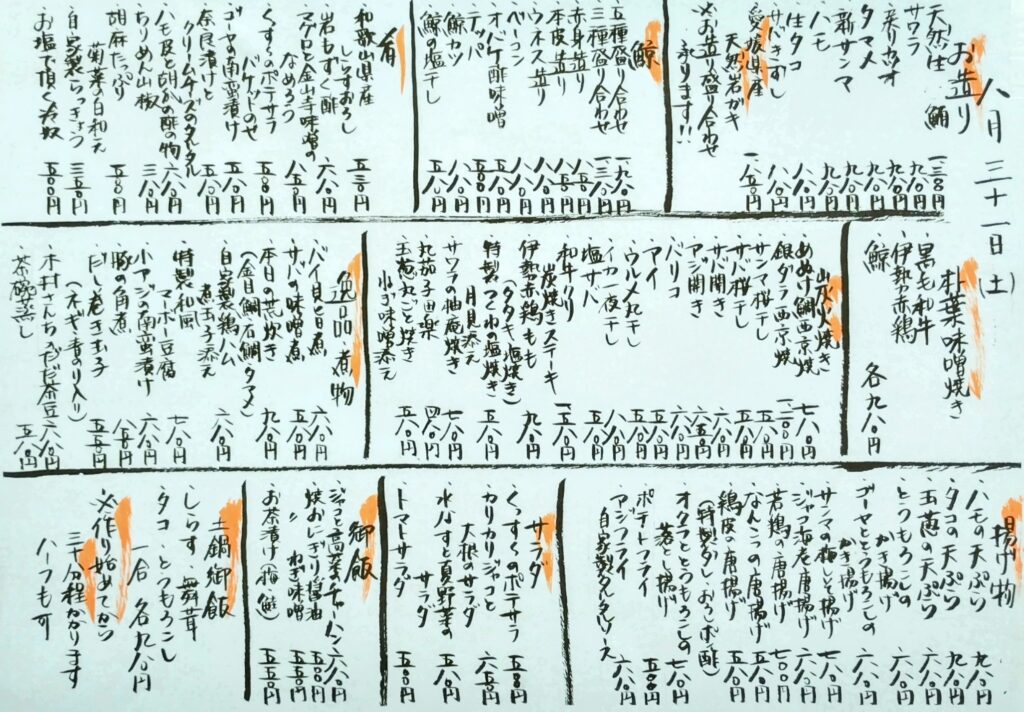 八月三十一日(土)
お造り
天然生鮪 一、三八〇円
サワラ 九八〇円
戻りカツオ 九八〇円
タマメ 九八〇円
新サンマ 九八〇円
ハモ 九八〇円
生タコ 八八〇円
サバきずし 八八〇円
愛媛県産
天然岩ガキ 一、八五〇円
※お造り盛り合わせ
承ります!!
鯨
五種盛り合わせ
三種盛り合わせ
赤身造り
本皮造り
ウネス造り
ベーコン
オバケ酢味噌
テッパ
鯨カツ
鯨の塩干し
肴
和歌山県産
しらすおろし 五三〇円
岩もずく酢 六八〇円
マグロと金山寺味噌の
なめろう 八五〇円
くすくすのポテサラ
バゲットのせ 五八〇円
ゴーヤの南蛮漬け 五八〇円
奈良漬けと
クリームチーズのタルタル 五八〇円
ハモ皮と胡瓜の酢の物 六八〇円
ちりめん山椒 三八〇円
胡麻たっぷり
菊菜の白和え 五八〇円
自家製らっきょう 三五〇円
お塩で頂く冷奴 五〇〇円
朴葉味噌焼き
黒毛和牛
伊勢赤鶏
鯨
各九八〇円
炭火焼き
めぬけ鯛西京焼 七八〇円
銀ダラ西京焼
サンマ桜干し
サバ桜干し
サバ開き
アジ開き
バリコ
アイ
ウルメ丸干し
イカ一夜干し
塩サバ
和牛クリ
炭焼きステーキ
伊勢赤鶏もも
(タタキ、塩焼き) 九八〇円
特製つくねの塩焼き
月見添え 五八〇円
サワラの柚庵焼き 七八〇円
丸茄子田楽 四八〇円
玉葱丸ごと焼き
山椒味噌添え 五八〇円
逸品・煮物
バイ貝旨煮 六八〇円
サバの味噌煮 五八〇円
本日の荒炊き
(金目鯛、石鯛、タマメ) 九八〇円
自家製鶏ハム
煮玉子添え 六八〇円
特製和風
マーボ豆腐 七八〇円
小アジの南蛮漬け 六八〇円
豚の角煮 八五〇円
だし巻き玉子
(ネギ、青のり入り) 五五〇円
木村さんちのだだ茶豆 六八〇円
茶碗蒸し 五八〇円
揚げ物
ハモの天ぷら 九八〇円
タコの天ぷら 九八〇円
玉葱の天ぷら 六八〇円
とうもろこしの
かき揚げ 六八〇円
ゴーヤととうもろこしの
かき揚げ 六八〇円
サンマの梅しそ揚げ 七八〇円
ジャコ海老唐揚げ 六八〇円
若鶏の唐揚げ 七〇〇円
なんこつの唐揚げ 五八〇円
鶏皮の唐揚げ 五八〇円
(特製だし、おろしポン酢)
オクラととうもろこしの
落とし揚げ 七八〇円
ポテトフライ 五八〇円
アジフライ
自家製タルタルソース 六八〇円
サラダ
くすくすのポテサラ 五八〇円
カリカリジャコと
大根のサラダ 六五〇円
水なすと夏野菜の
サラダ 五八〇円
トマトサラダ 五〇〇円
御飯
ジャコと高菜のチャーハン 六八〇円
焼おにぎり醤油 五〇〇円
〃 ねぎ味噌 五五〇円
お茶漬け(梅、鮭) 五八〇円
土鍋御飯
しらす、舞茸
タコ、とうもろこし
一合 各九八〇円
※作り始めてから
三十分程かかります
ハーフも可